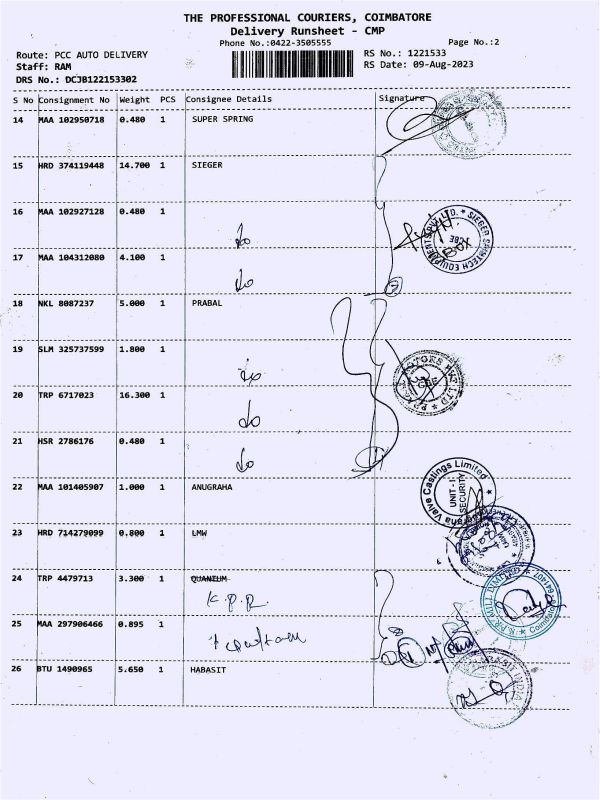 THE PROFESSIONAL COURIERS, COIMBATORE
Delivery Runsheet - CMP
Phone No.:0422-3505555 Page No.:2
Route: PCC AUTO DELIVERY RS No.: 1221533
Staff: RAM RS Date: 09-Aug-2023
DRS No.: DCJB122153302
S No Consignment No Weight PCS Consignee Details Signature
14 MAA 102950718 0.480 1 SUPER SPRING
15 HRD 374119448 14.700 1 SIEGER
16 MAA 102927128 0.480 1 do
17 MAA 104312080 4.100 1 do
18 NKL 8087237 5.000 1 PRABAL
19 SLM 325737599 1.800 1 do
20 TRP 6717023 16.300 1 do
21 HSR 2786176 0.480 1 do
22 MAA 101405907 1.000 1 ANUGRAHA
Valve Castings Limited
UNIT - I
SECURITY
23 HRD 714279099 0.800 1 LMW
24 TRP 4479713 3.300 1 QUANTUM
K.P.R
25 MAA 297906466 0.895 1
26 BTU 1490965 5.650 1 HABASIT